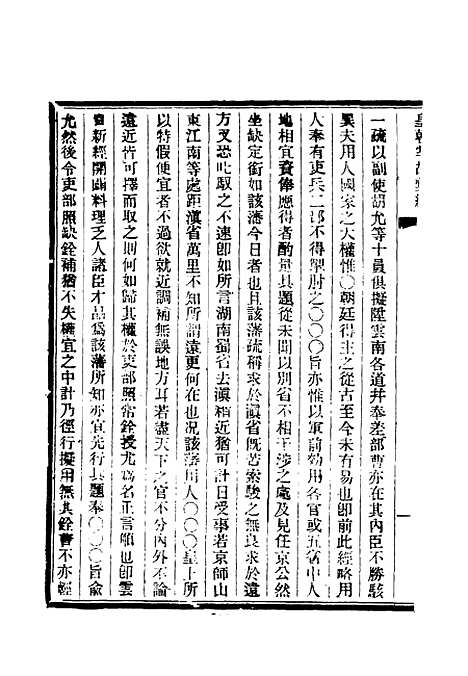 一疏以副使胡允等十員俱擬陞雲南各道并奉差部曹亦在其內臣不勝駭
異夫用人國家之大權惟〇朝廷得主之從古至今未有易也卽前此經略用
人奉有吏兵二部不得掣肘之〇〇〇旨亦惟以軍前効用各官或五省中人
地相宜資俸應得者酌量具題從未聞以別省不相干涉之處及見任京公然
坐缺定銜如該藩今日者也且該藩疏稱求於滇省旣苦索駿之無良求於遠
方又恐叱馭之不速卽如所言湖南蜀省去滇稍近猶可計日受事若京師山
東江南等處距滇省萬里不知所謂遠更何在也況該藩用人〇〇〇皇上所
以特假便宜者不過欲就近調補無誤地方耳若盡天下之官不分內外不論
遠近皆可擇而取之則何如歸其權於吏部照常銓授尤爲名正言順也卽雲
貴新經開闢料理乏人諸臣才品爲該藩所知亦宜先行具題奉〇〇〇旨俞
允然後令吏部照缺銓補猶不失權宜之中計乃徑行擬用無異銓曹不亦輕